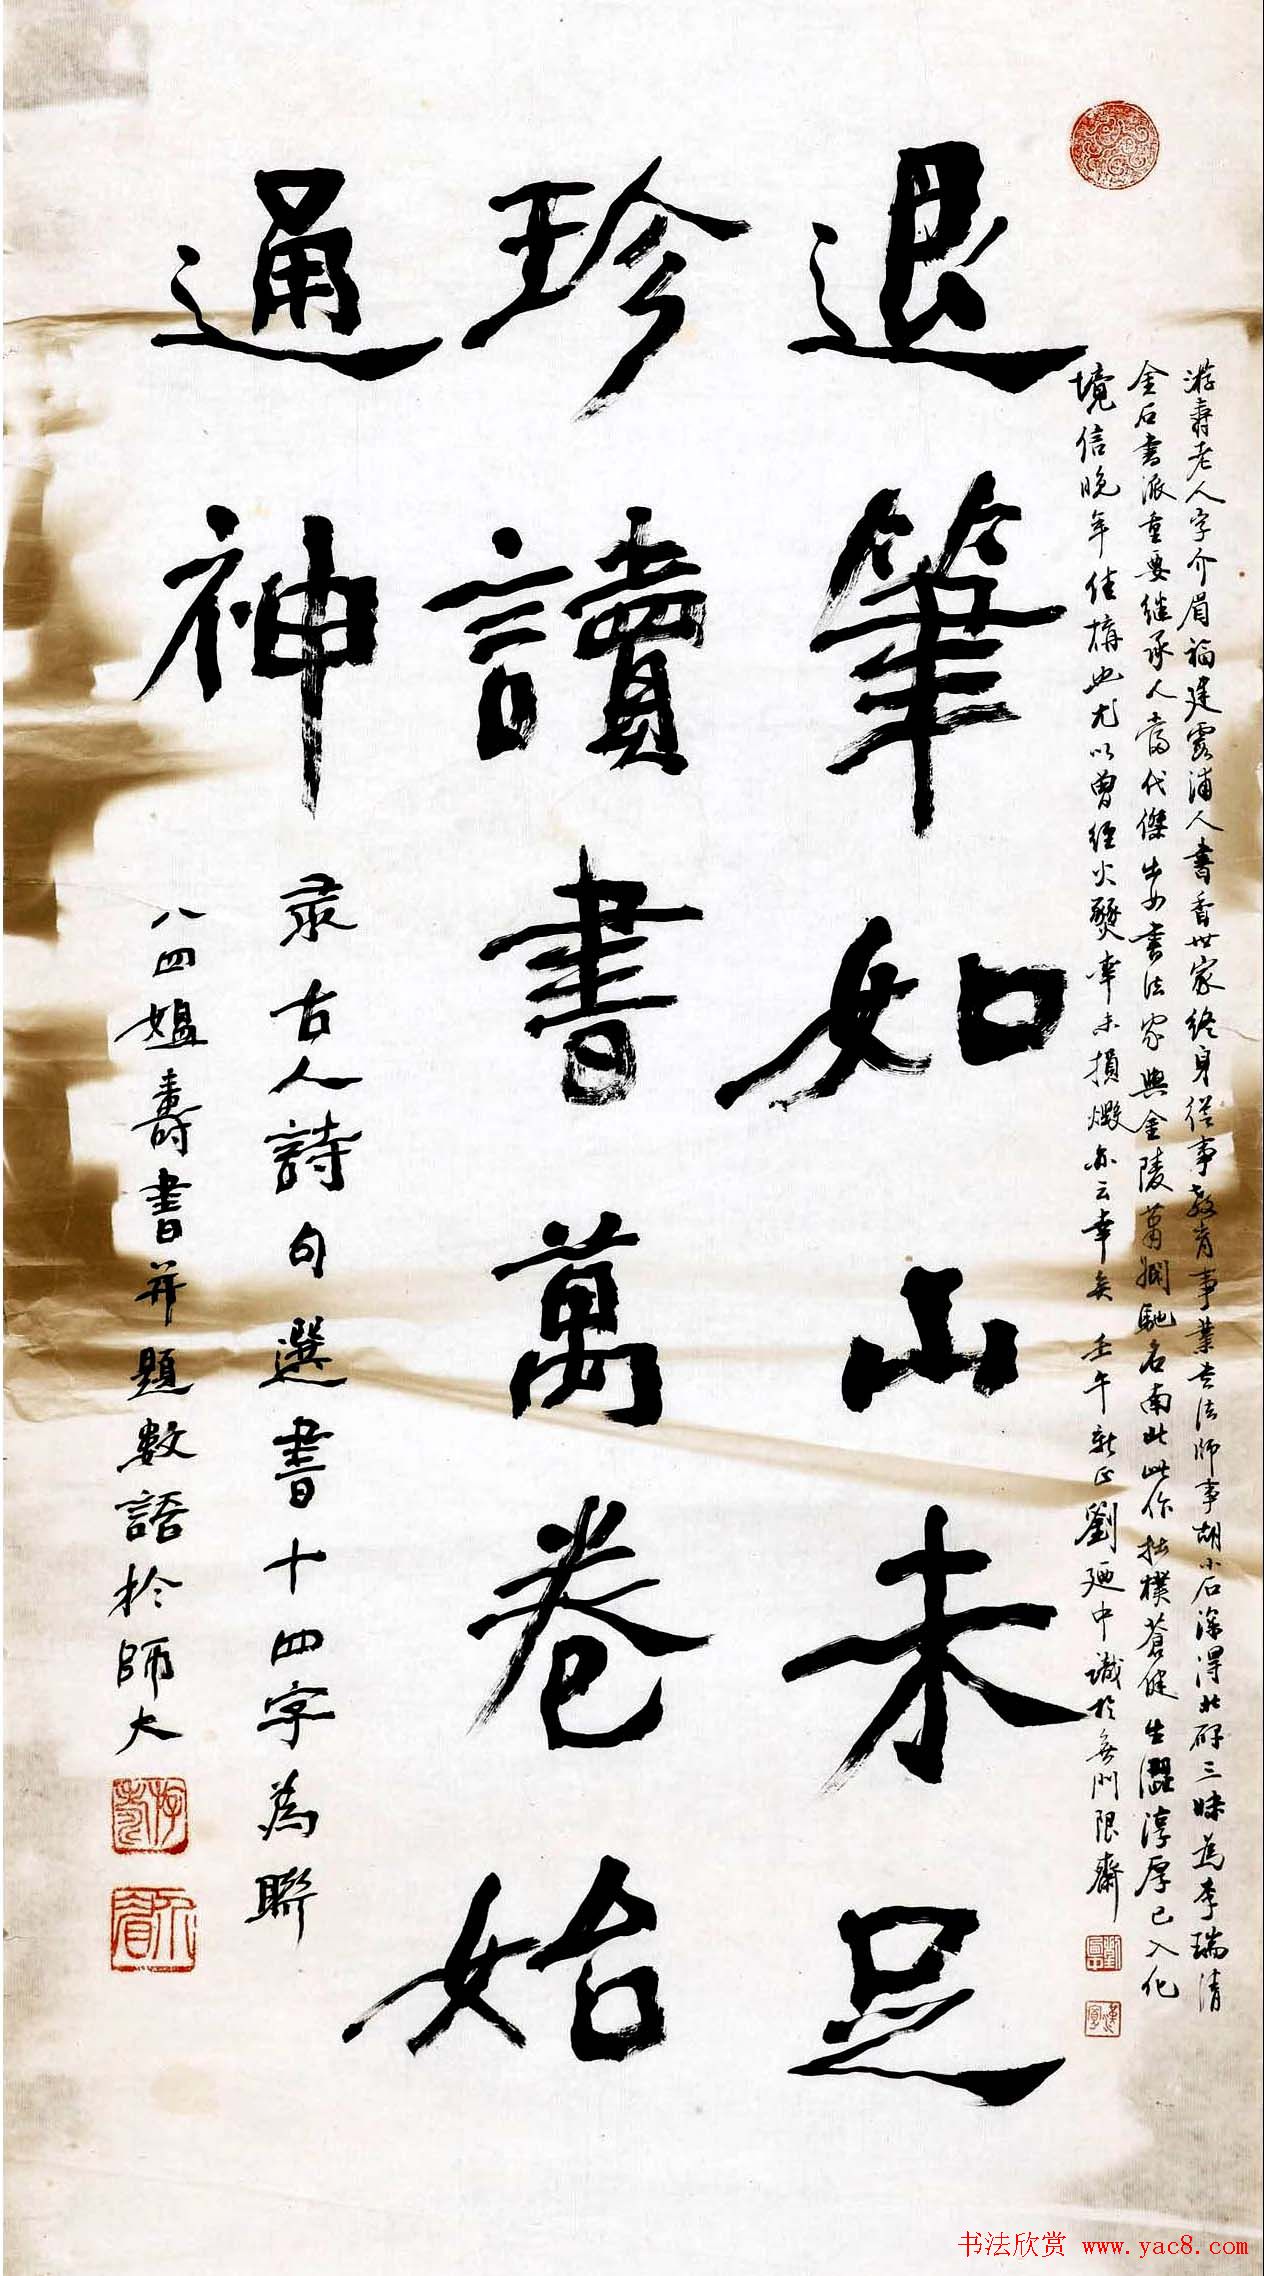 游壽老人字介眉福建霞浦人書香世家終身從事教育事業書法師事胡小石深得北碑三昧為李瑞清
金石書派重要继承人當代傑出女書法家與金陵蕭嫻馳名南北此作拙樸蒼健生澀淳厚已入化
境信晚年佳構也尤以曾經火燹幸未損燬亦云幸矣 壬午新正劉廼中識於無門限齋
退筆如山未足
珍讀書萬卷始
通神
录古人詩句選書十四字為聯
八四媪壽書并題數語於師大
游壽
介眉
书法欣赏 www.yac8.com